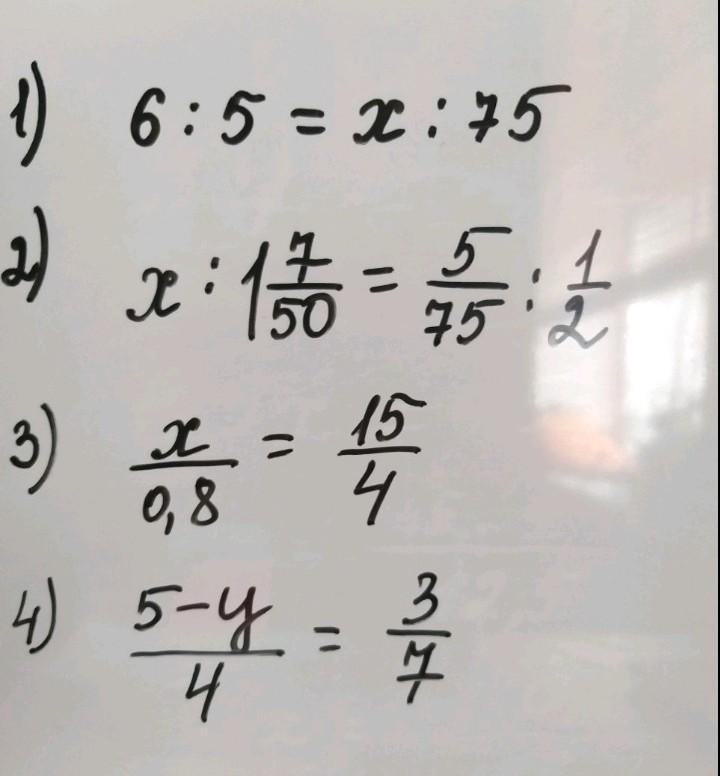 1) 6 : 5 = x : 75
2) x : 1 7/50 = 5/75 : 1/2
3) x/0,8 = 15/4
4) (5-y)/4 = 3/7